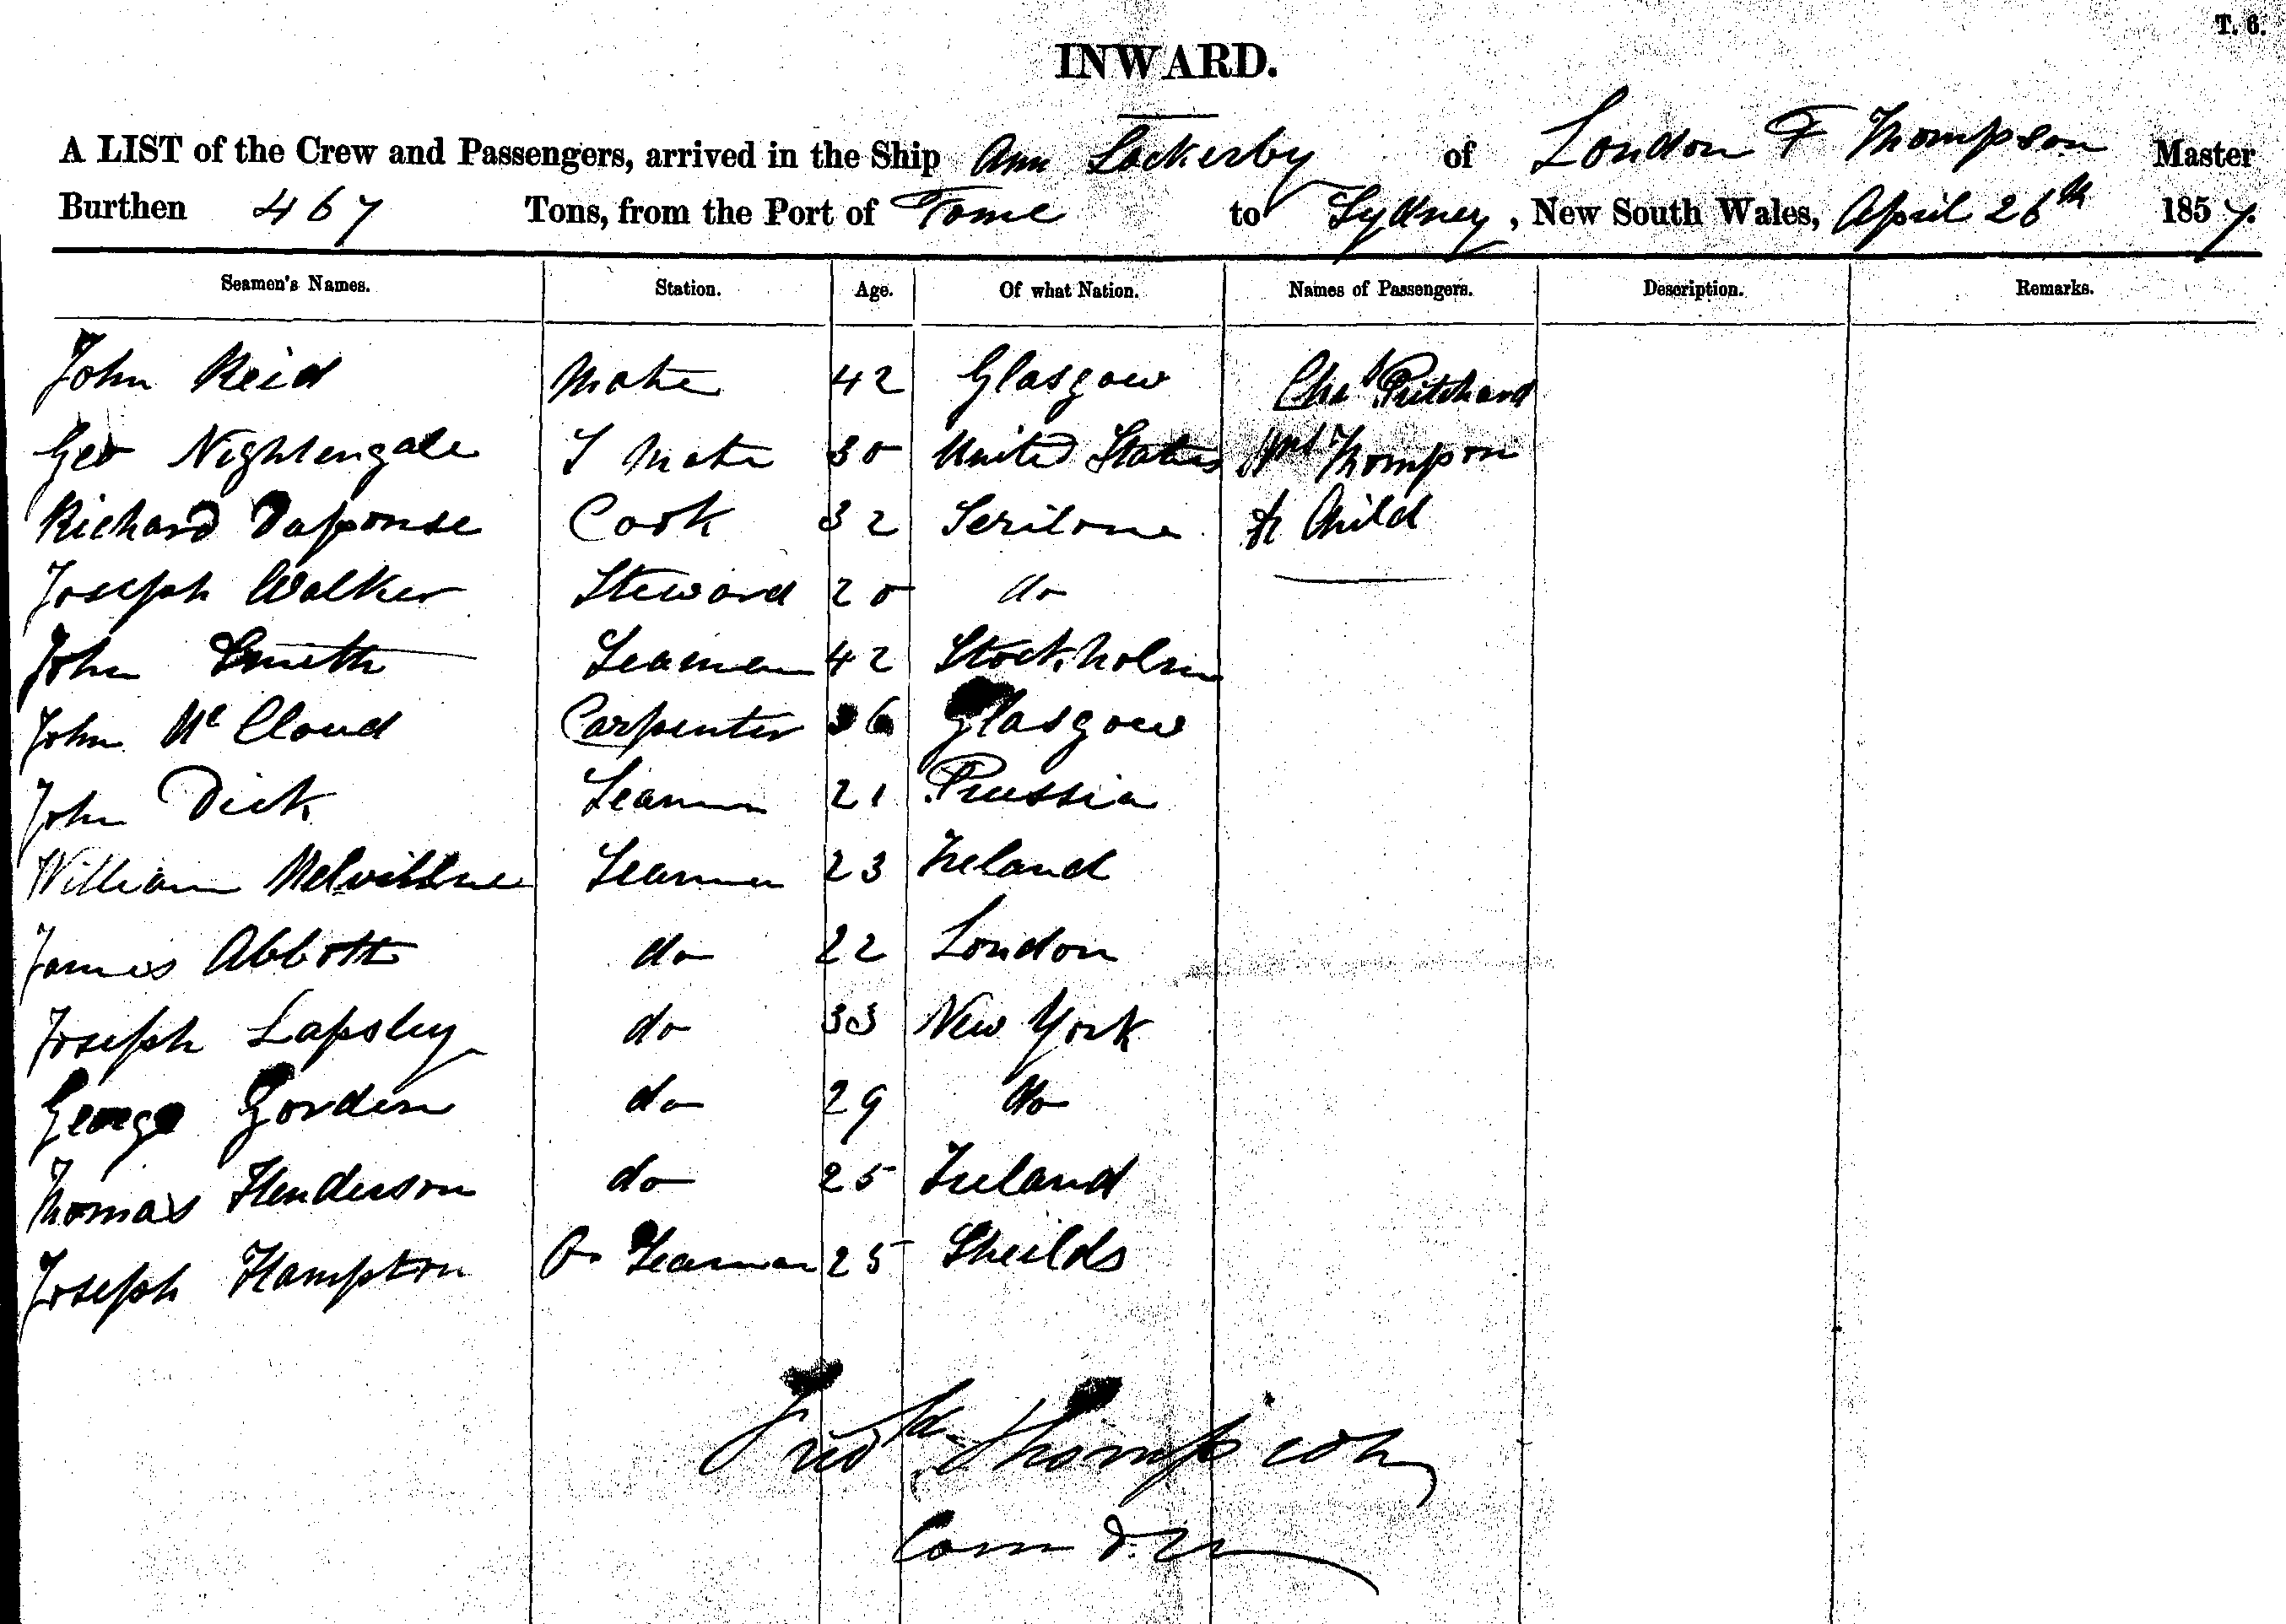 T. 6.
INWARD.
A LIST of the Crew and Passengers, arrived in the Ship Ann Lockerby of London F Thompson Master
Burthen 467 Tons, from the Port of Tome to Sydney, New South Wales, April 26th 1857.
Seamen's Names. Station. Age. Of what Nation. Names of Passengers. Description. Remarks.
John Reid Mate 42 Glasgow Chas Pritchard
Geo Nightengale S Mate 30 United States Mrs Thompson
Richard Cook 32 Serilone & Child
Joseph Walker Steward 20 do
John Smith Seaman 42 Stockholm
John McCloud Carpenter 36 Glasgow
John Dick Seaman 21 Prussia
William Seaman 23 Ireland
James Abbott do 22 London
Joseph Lapsley do 33 New York
George Gorden do 29 do
Thomas Henderson do 25 Ireland
Joseph Hampton Seaman 25 Sheilds
Fredk Thompson